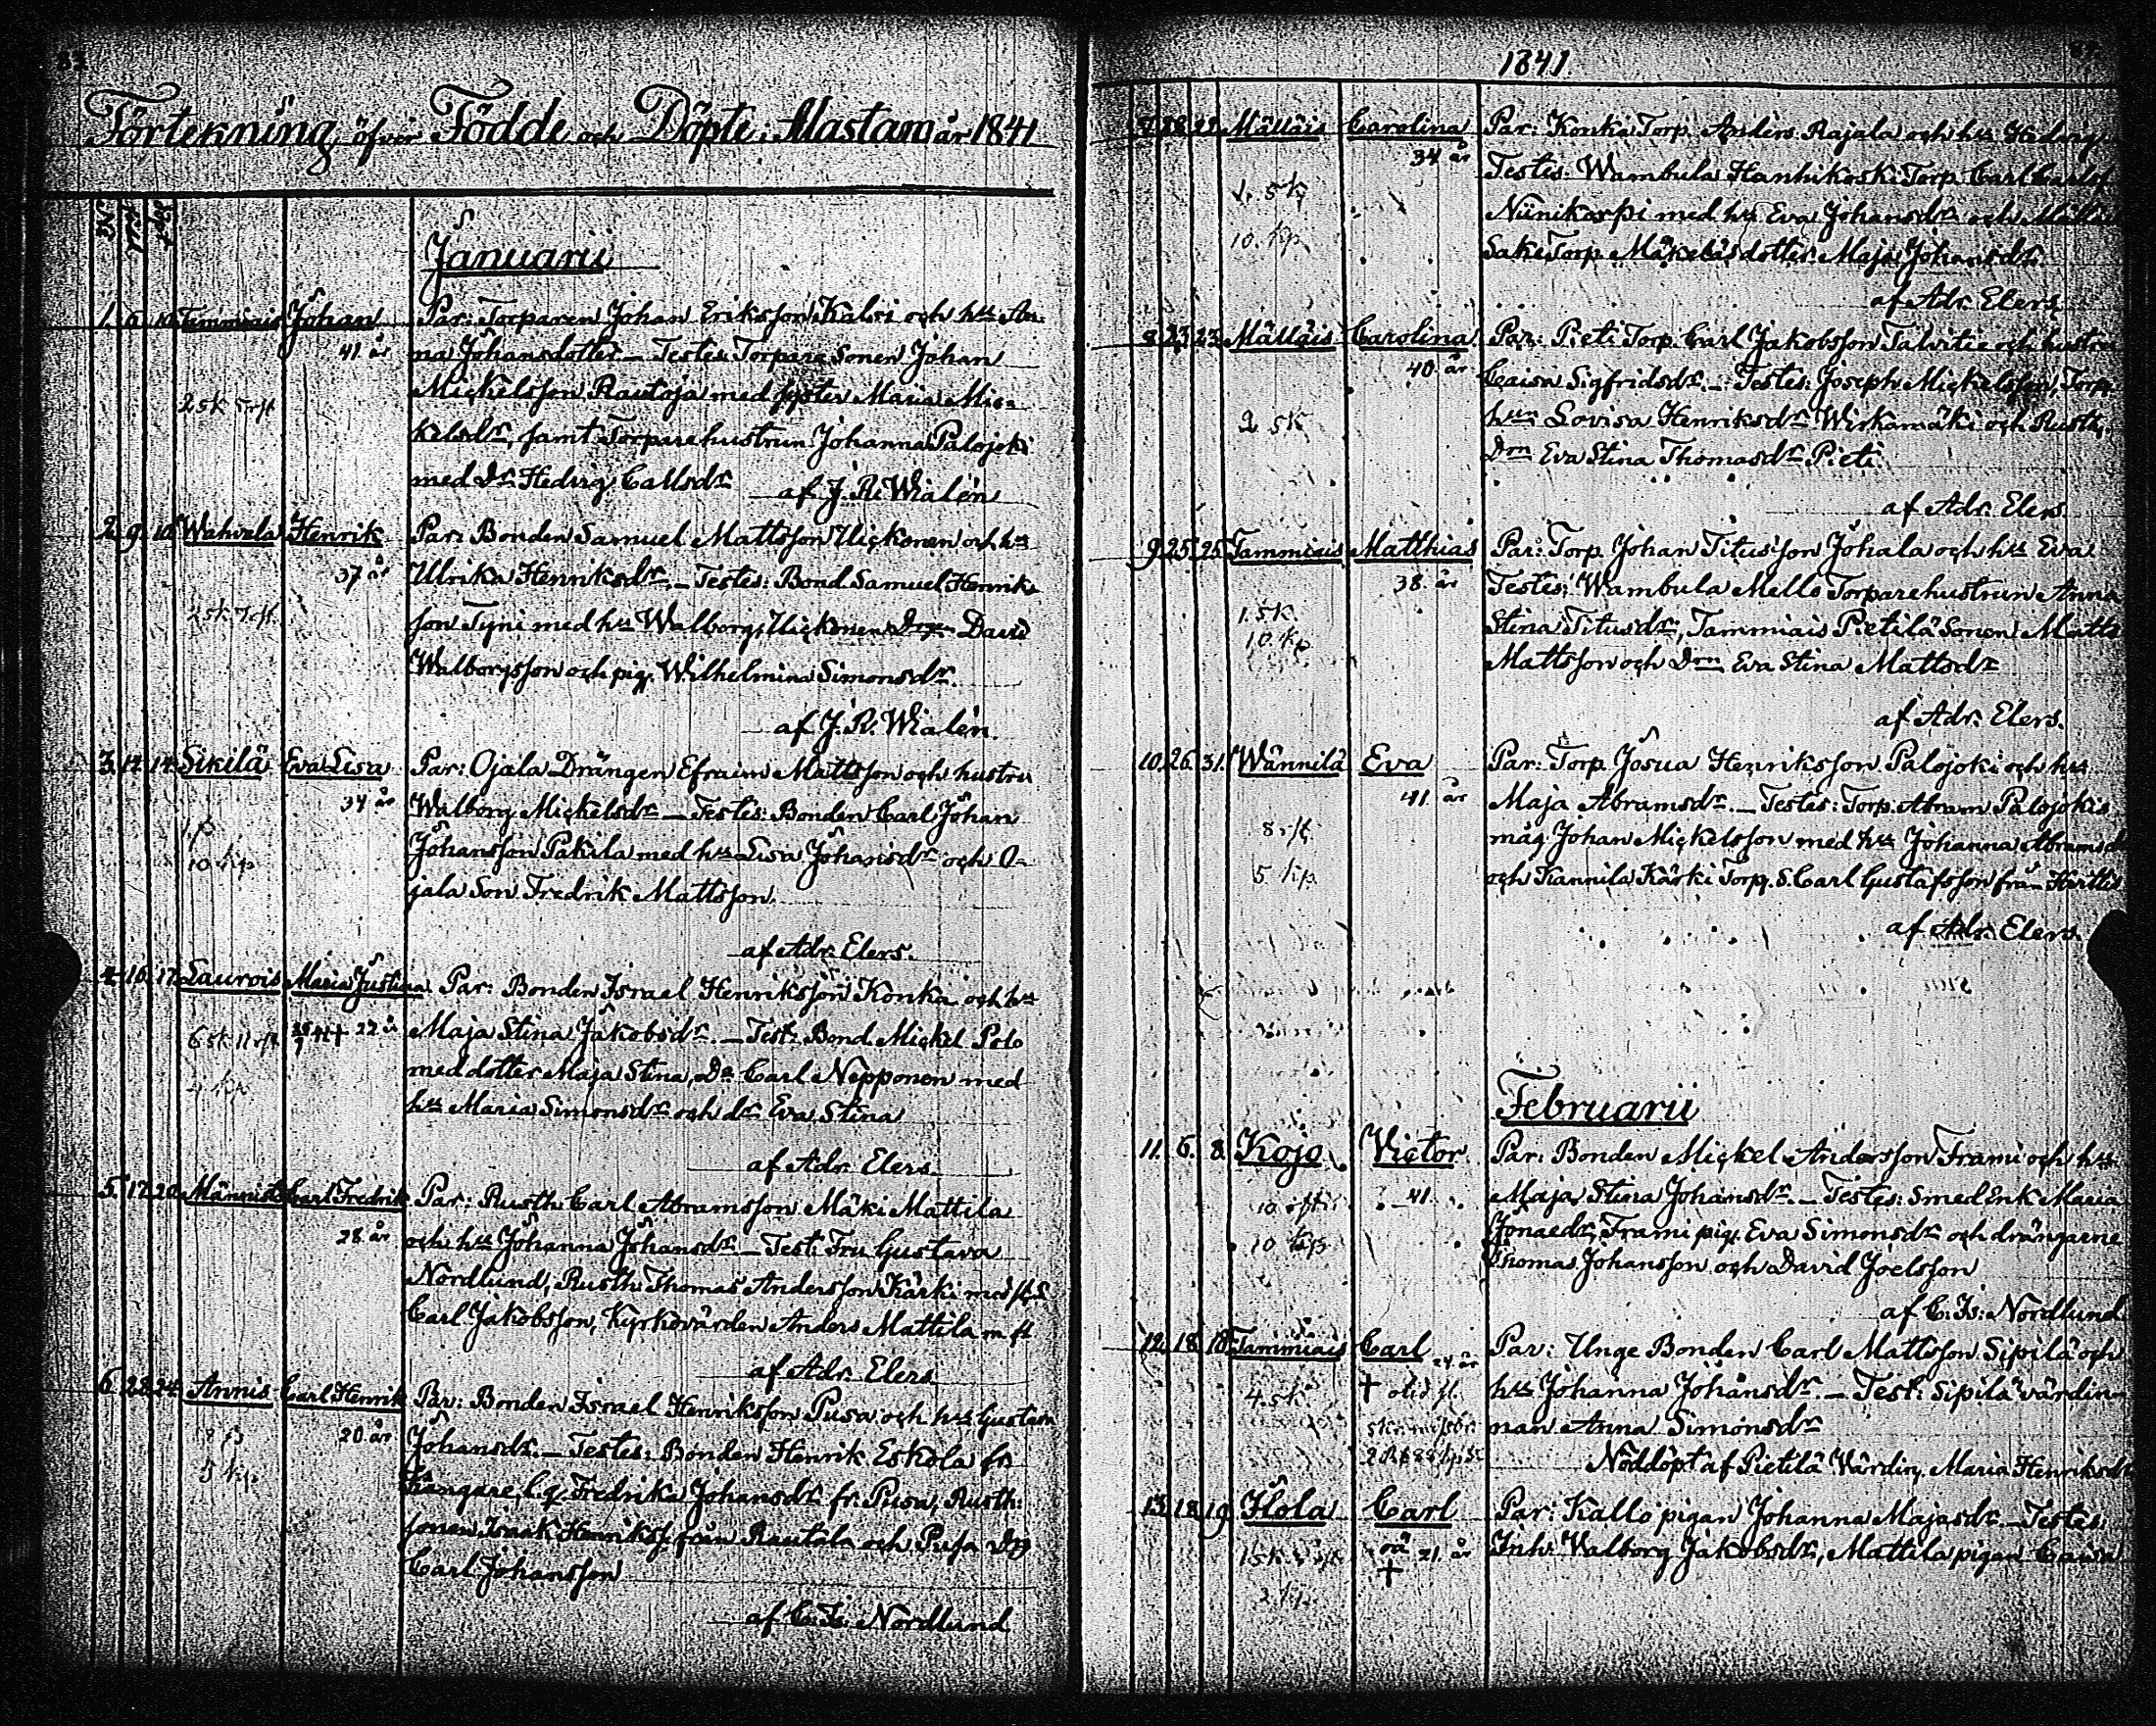 83
Förtekning öfver Födde och Döpte i Mastam år 1841
Januarii
1. 6. 10. Tammiais Johan Par: Torparen Johan Eriksson Kalvi och hu An-
41 år na Johansdotter. — Testes: Torpare Sonen Johan
Mickelsson Rautoja med syster Maria Mic-
25k 5rst kelsdr, samt Torparehustrun Johanna Palojoki
med Dr Hedvig Callsdr af J. R. Wialén
2. 9. 10. Wahvala Henrik Par: Bonden Samuel Mattsson Uckonen och hu
37 år Ulrika Henriksdr. — Testes: Bond. Samuel Henrik-
sson Tyni med hu Walborg, Uckonen Drn David
Walborgsson och pig. Wilhelmina Simonsdr.
af J. R. Wialén.
3. 12. 14. Sikilä Eva Lisa Par: Ojala Drängen Efraim Mattsson och hustru
34 år Walborg Mickelsdr — Testes: Bonden Carl Johan
Johansson Pakila med hu Lisa Johansdr och O-
10 kp jala Son Fredrik Mattsson.
af Adr. Elers.
4. 16. 17. Laurois Maria Justina Par: Bonden Israel Henriksson Konka och hu
6sk 11 rst 22 år Maja Stina Jakobsdr. — Test: Bond. Mickel Polo
med dotter Maja Stina, Do Carl Nepponen med
hu Maria Simonsdr och dr Eva Stina
af Adr. Elers
5. 17. 20. Männistö Carl Fredrik Par: Rusth. Carl Abramsson Mäki Mattila
28 år och hu Johanna Johansdr — Test: Fru Gustava
Nordlund, Rusth. Thomas Andersson Kärki med
Carl Jakobsson, Kyrkovärden Anders Mattila m fl
af Adr. Elers
6. 23. 24. Annis Carl Henrik Par: Bonden Israel Henriksson Pusa och hu Gustava
20 år Johansdr. — Testes: Bonden Henrik Eskola fr
5 kp Kangare, l. q. Fredrika Johansdr fr. Pusa, Rusth:
sonen Isaak Henrikss. från Rautala och Pusa Drg
Carl Johansson
af C. Is. Nordlund
1841.
7. 22. 22. Mälläis Carolina Par: Konka Torp. Anders Rajala och hu Hedvig
34 år Testes: Wambula Hanhikoski Torp. Carl
1. 5k Niinikorpi med hu Eva Johansdr och
10. kp Sake Torp. Mäkeläs dotter Maja Johansdr
af Adr. Elers
8. 23. 23. Mälläis Carolina Par: Pieti Torp. Carl Jakobsson Talvitie och hustru
40 år Caisa Sigfridsdr. — Testes: Joseph Mickelsson, Torp.
2 5k hun Lovisa Henriksdr Wirkamäki och Rusth.
Drn Eva Stina Thomasdr Pieti
af Adr. Elers
9. 25. 25. Tammiais Matthias Par: Torp Johan Titusson Johala och hu Eva
38 år Testes: Wambula Mello Torparehustrun Anna
1. 5k. Stina Titusdr, Tammiais Pietilä Sonen Matts
10 kp Mattsson och Drn Eva Stina Mattsdr
af Adr. Elers.
10. 26. 31. Wännilä Eva Par: Torp Josua Henriksson Palojoki och hu
41 år Maja Abramsdr. — Testes: Torp. Abram Palojokis
8 rst måg Johan Mickelsson med hu Johanna Abramsdr
5 kp och Kannila Kärki Torp. S. Carl Gustafsson från Hirttis
af Adr. Elers
Februarii
11. 6. 8. Kojo Victor Par: Bonden Mickel Andersson Frami och hu
41. Maja Stina Johansdr. — Testes: Smed Enk. Maria
10 kp Jonaedr, Frami pig. Eva Simonsdr och drängarne
Thomas Johansson och David Joelsson
af C. Is: Nordlund
12. 18. 18. Tammiais Carl 24 år Par: Unge Bonden Carl Mattsson Sipilä och
4. 5k hu Johanna Johansdr. — Test: Sipilä värdin-
nan Anna Simonsdr
Nöddöpt af Pietilä Värdin. Maria Henriksdr
13. 18. 19. Hola Carl Par: Kallo pigan Johanna Majasdr. — Testes:
oä 21. år Inh: Walborg Jakobsdr, Mattila pigan Caisa